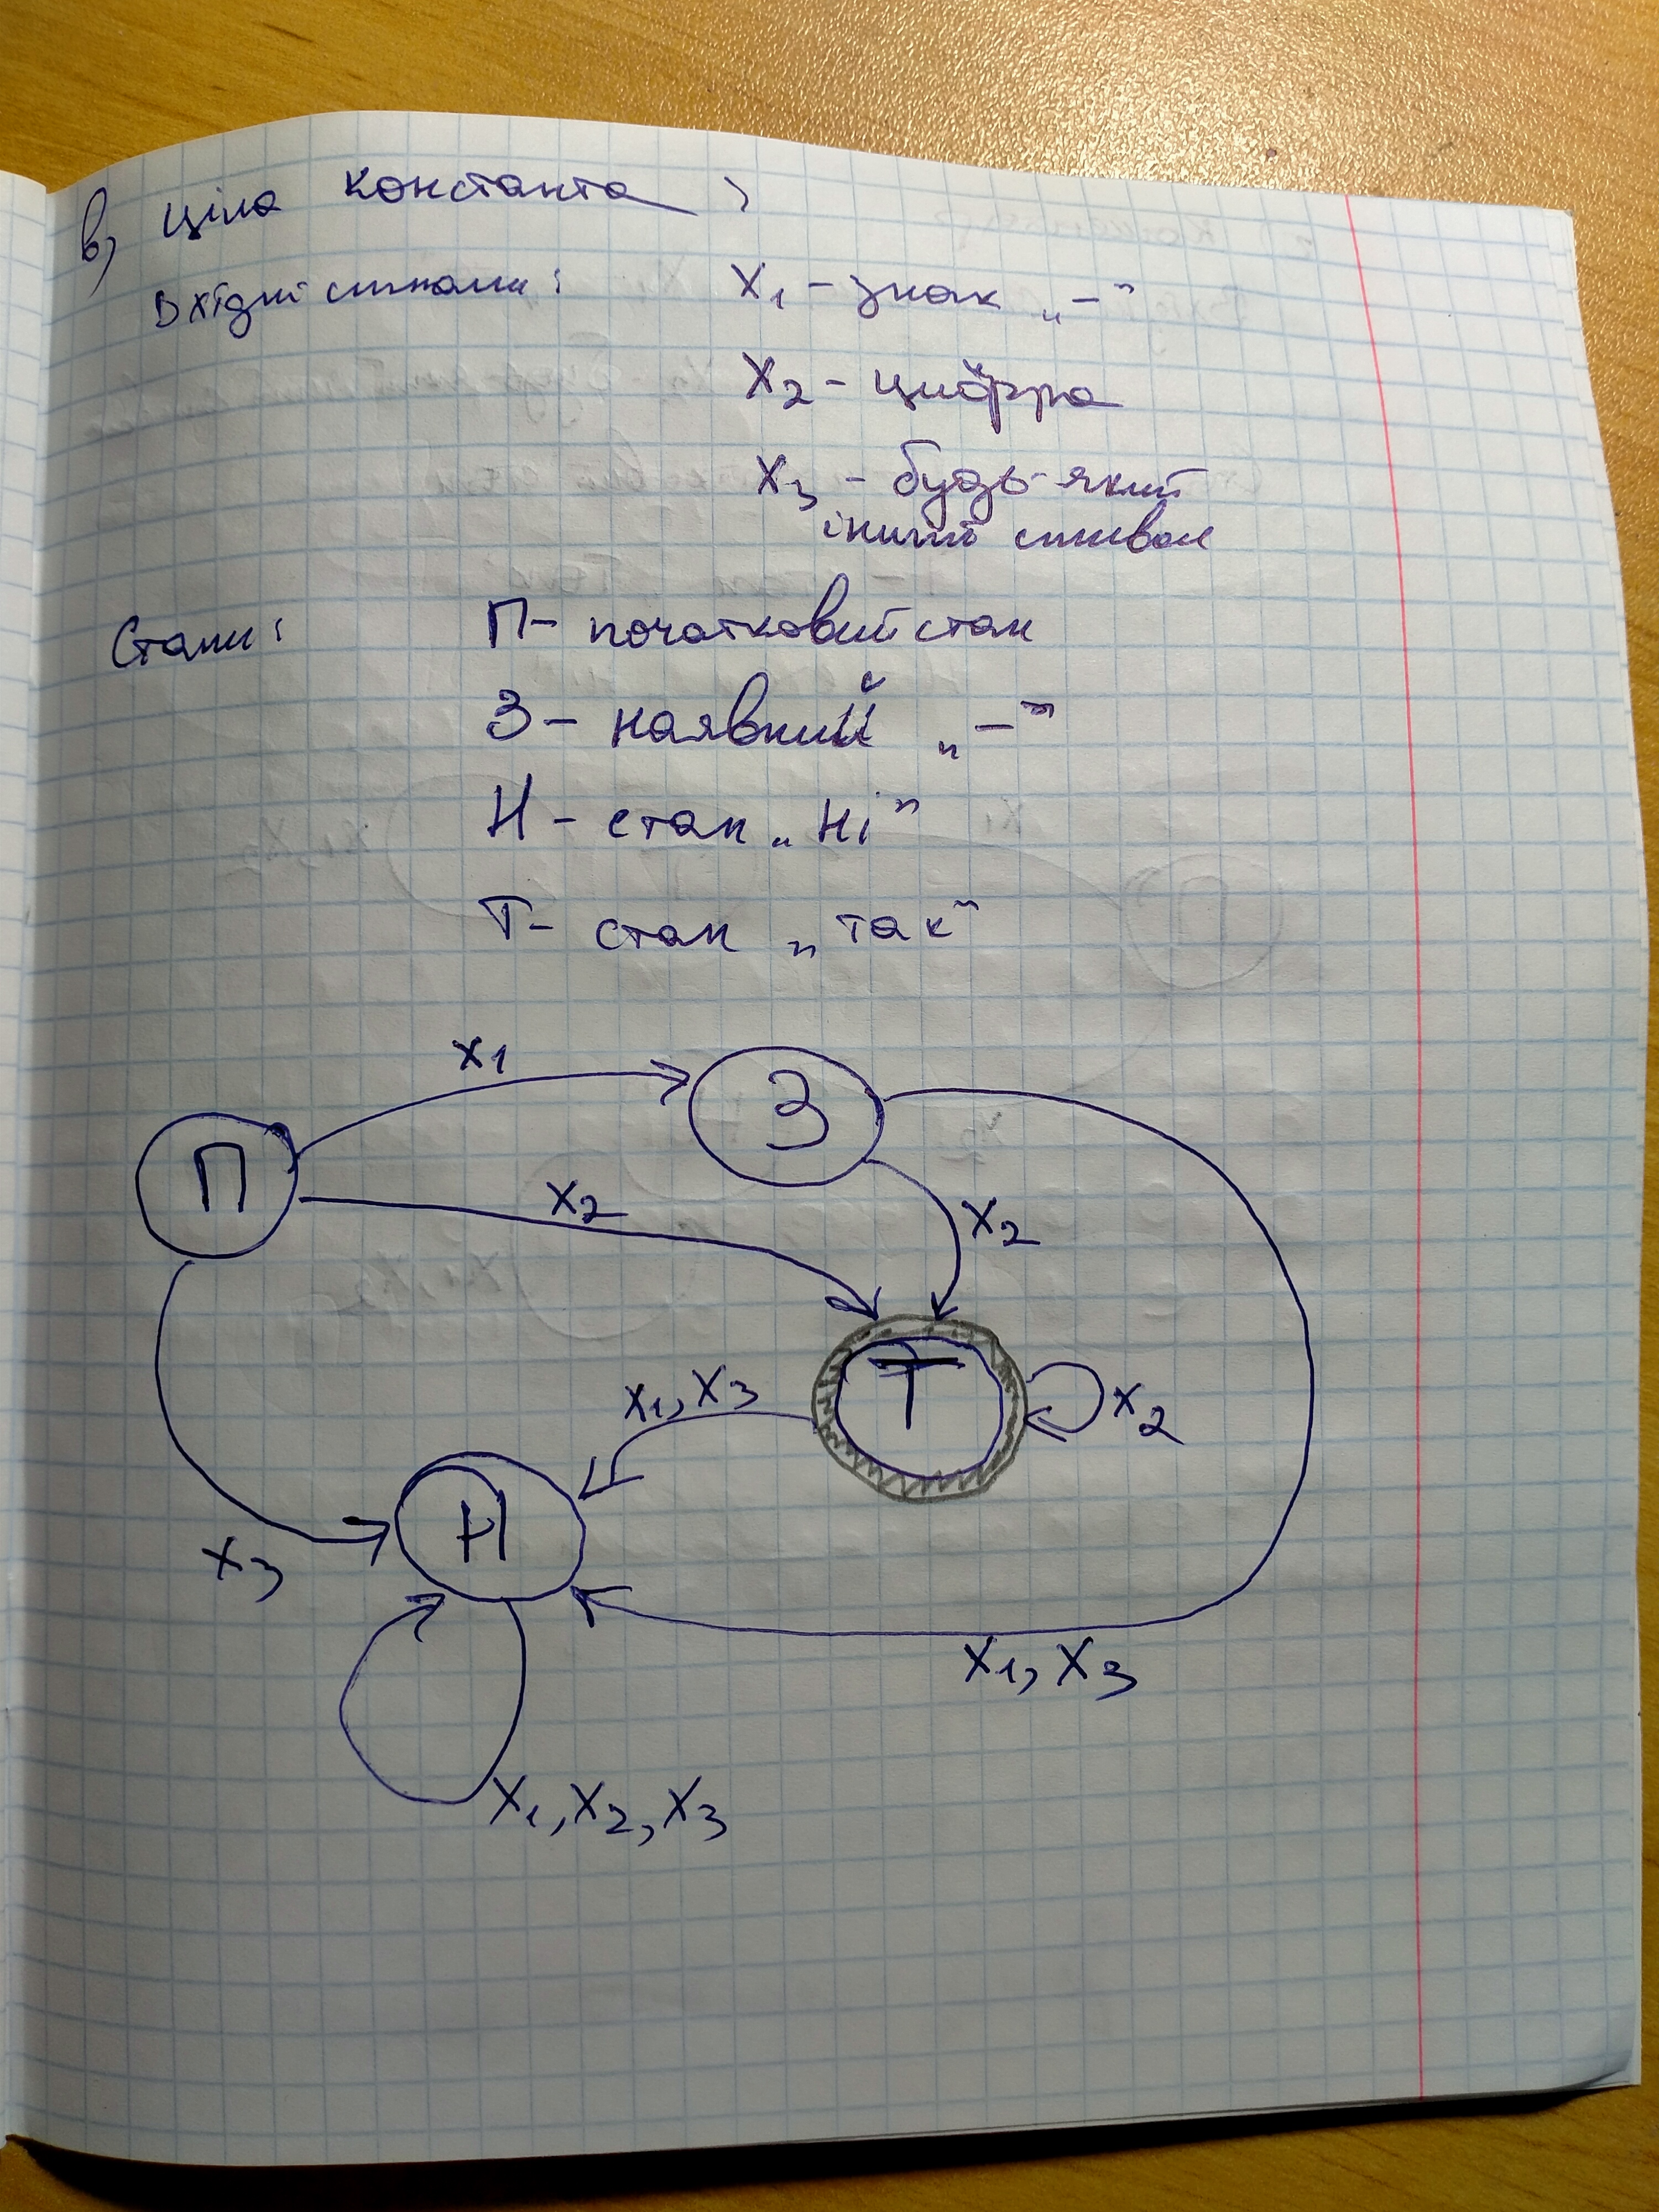 в) ціла константа:
Вхідні сигнали: X1 - знак „-"
X2 - цифра
X3 - будь-який
інший символ
Стани: П - початковий стан
З - наявний „-"
Н - стан „Ні"
Т - стан „так"
X1
З
П
X2
X2
Т
X1, X3
X2
Н
X3
X1, X3
X1, X2, X3